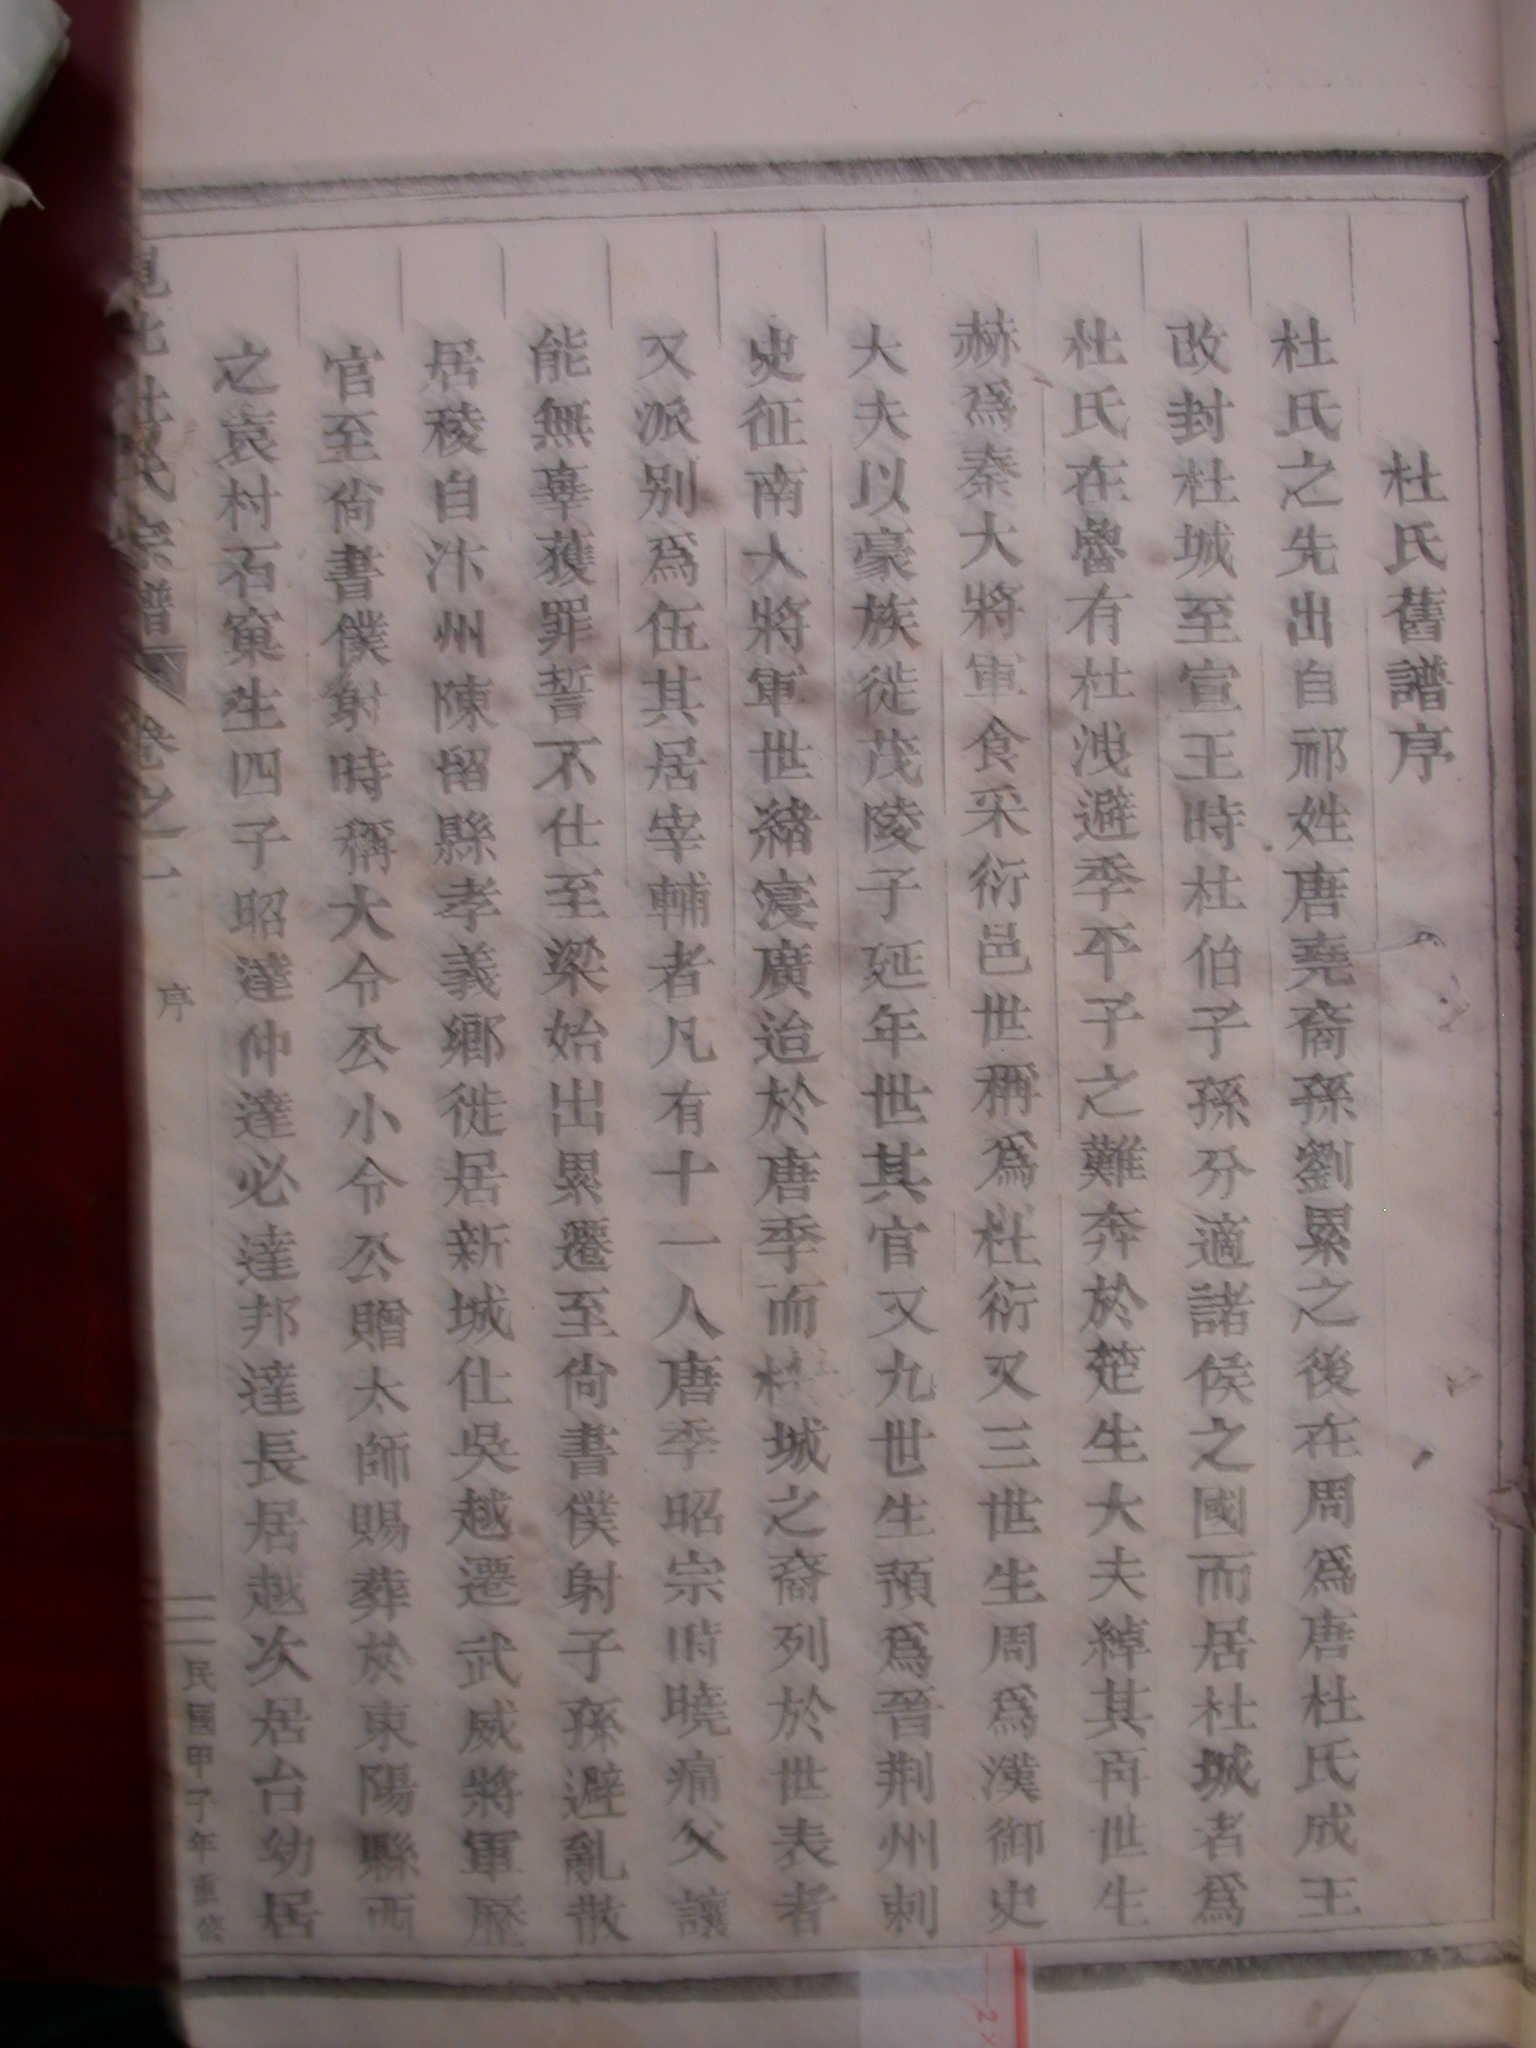 杜氏舊譜序
杜氏之先出自祁姓唐堯裔孫劉累之後在周爲唐杜氏成王
改封杜城至宣王時杜伯子孫分適諸侯之國而居杜城者爲
杜氏在魯有杜洩避季平子之難奔於楚生大夫綽其再世生
赫爲秦大將軍食采衍邑世稱爲杜衍又三世生周爲漢御史
大夫以豪族徙茂陵子延年世其官又九世生預爲晉荆州刺
史征南大將軍世緒寖廣迨於唐季而杜城之裔列於世表者
又派别爲伍其居宰輔者凡有十一人唐季昭宗時曉痛父讓
能無辜獲罪誓不仕至梁始出累遷至尙書僕射子孫避亂散
居稜自汴州陳留縣孝義鄉徙居新城仕吳越遷武威將軍歷
官至尙書僕射時稱大令公小令公贈太師賜葬於東陽縣西
之哀村石窠生四子昭達仲達必達邦達長居越次居台幼居
杜氏宗譜 卷之一 序 二 民國甲子年重